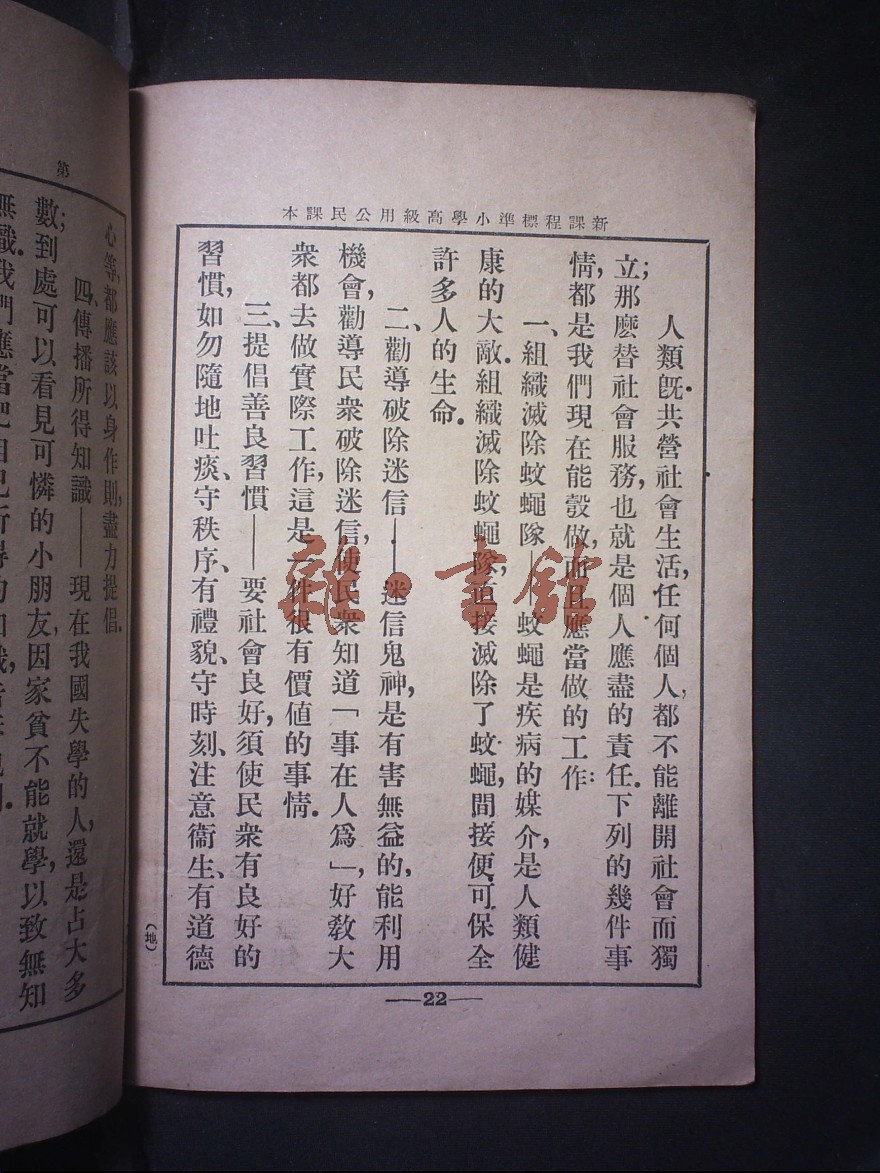 新課程標準小學高級用公民課本
人類旣共營社會生活,任何個人,都不能離開社會而獨
立;那麽替社會服務,也就是個人應盡的責任.下列的幾件事
情,都是我們現在能彀做,而且應當做的工作:
一、組織滅除蚊蠅隊——蚊蠅是疾病的媒介,是人類健
康的大敵.組織滅除蚊蠅隊,直接滅除了蚊蠅,間接便可保全
許多人的生命.
二、勸導破除迷信——迷信鬼神,是有害無益的,能利用
機會,勸導民衆破除迷信,使民衆知道「事在人爲」,好敎大
衆都去做實際工作,這是一件很有價值的事情.
三、提倡善良習慣——要社會良好,須使民衆有良好的
習慣,如勿隨地吐痰、守秩序、有禮貌、守時刻、注意衞生、有道德
(地)
22
第
心等,都應該以身作則,盡力提倡.
四、傳播所得知識——現在我國失學的人,還是占大多
數;到處可以看見可憐的小朋友,因家貧不能就學,以致無知
無識.我們應當把自己所得的知識,